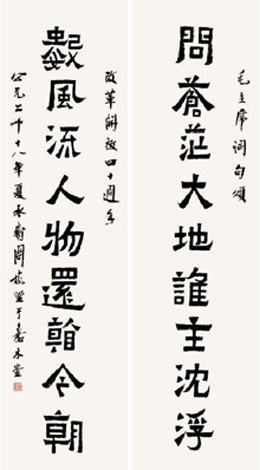 毛主席詞句頌
問蒼茫大地誰主沈浮
改革開放四十週年
數風流人物還看今朝
公元二千十八年夏承 周 于嘉木堂